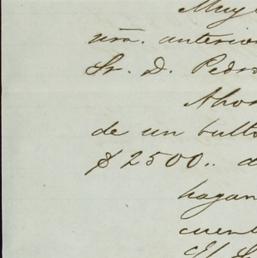 Muy
ura. anterior
Sr. D. Pedro
Ahor
de un bulto
$2500.. d
hagan
cuent
El S